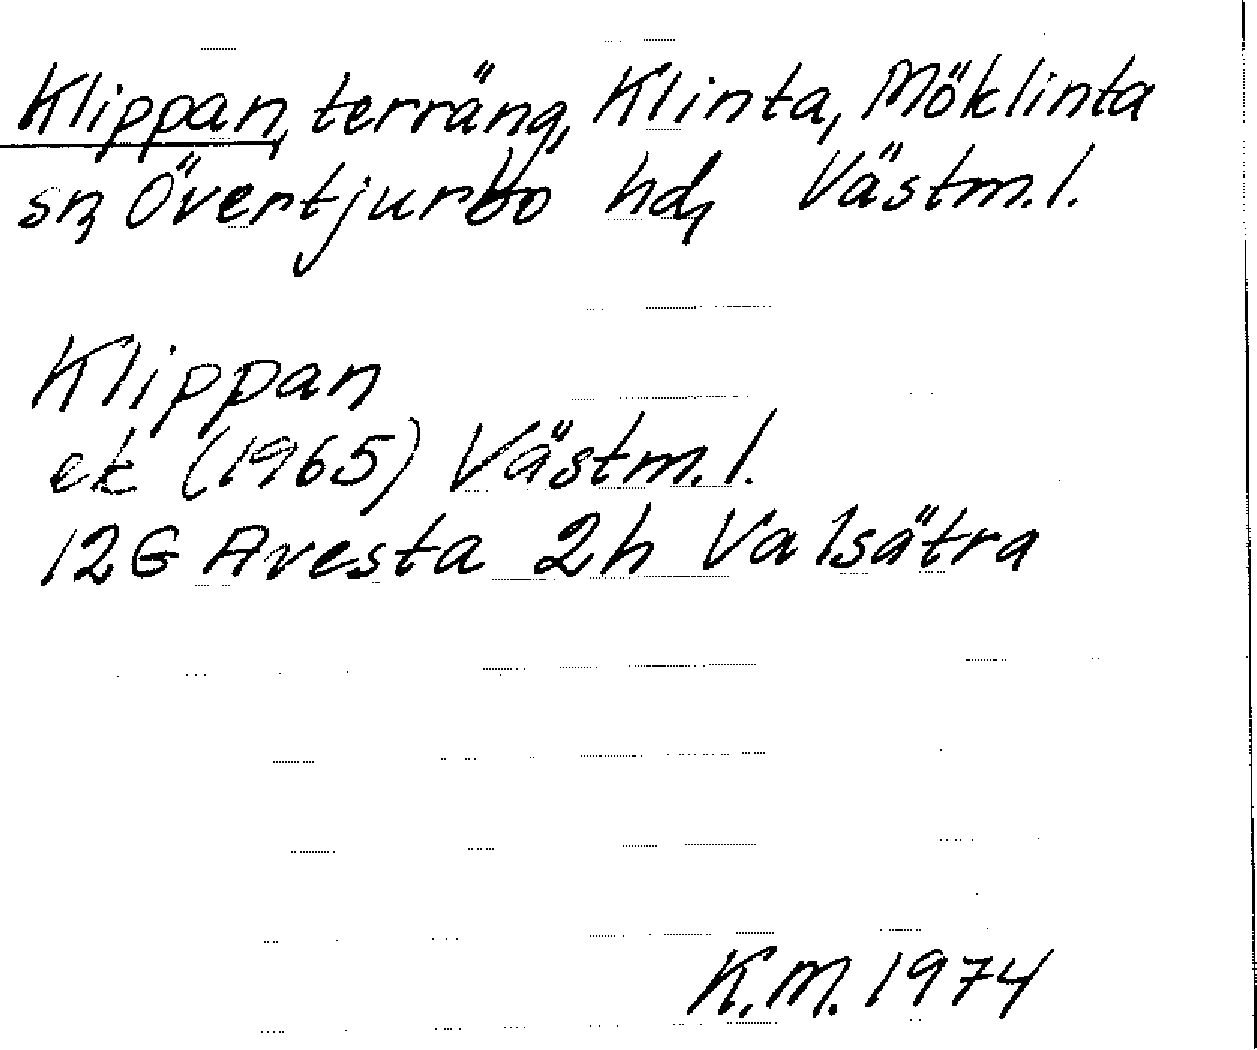 Klippan, terräng, Klinta, Möklinta
sn, Övertjurbo hd, Västm.l.
Klippan
ek (1965) Västm.l.
12G Avesta 2h Valsätra
K.M. 1974